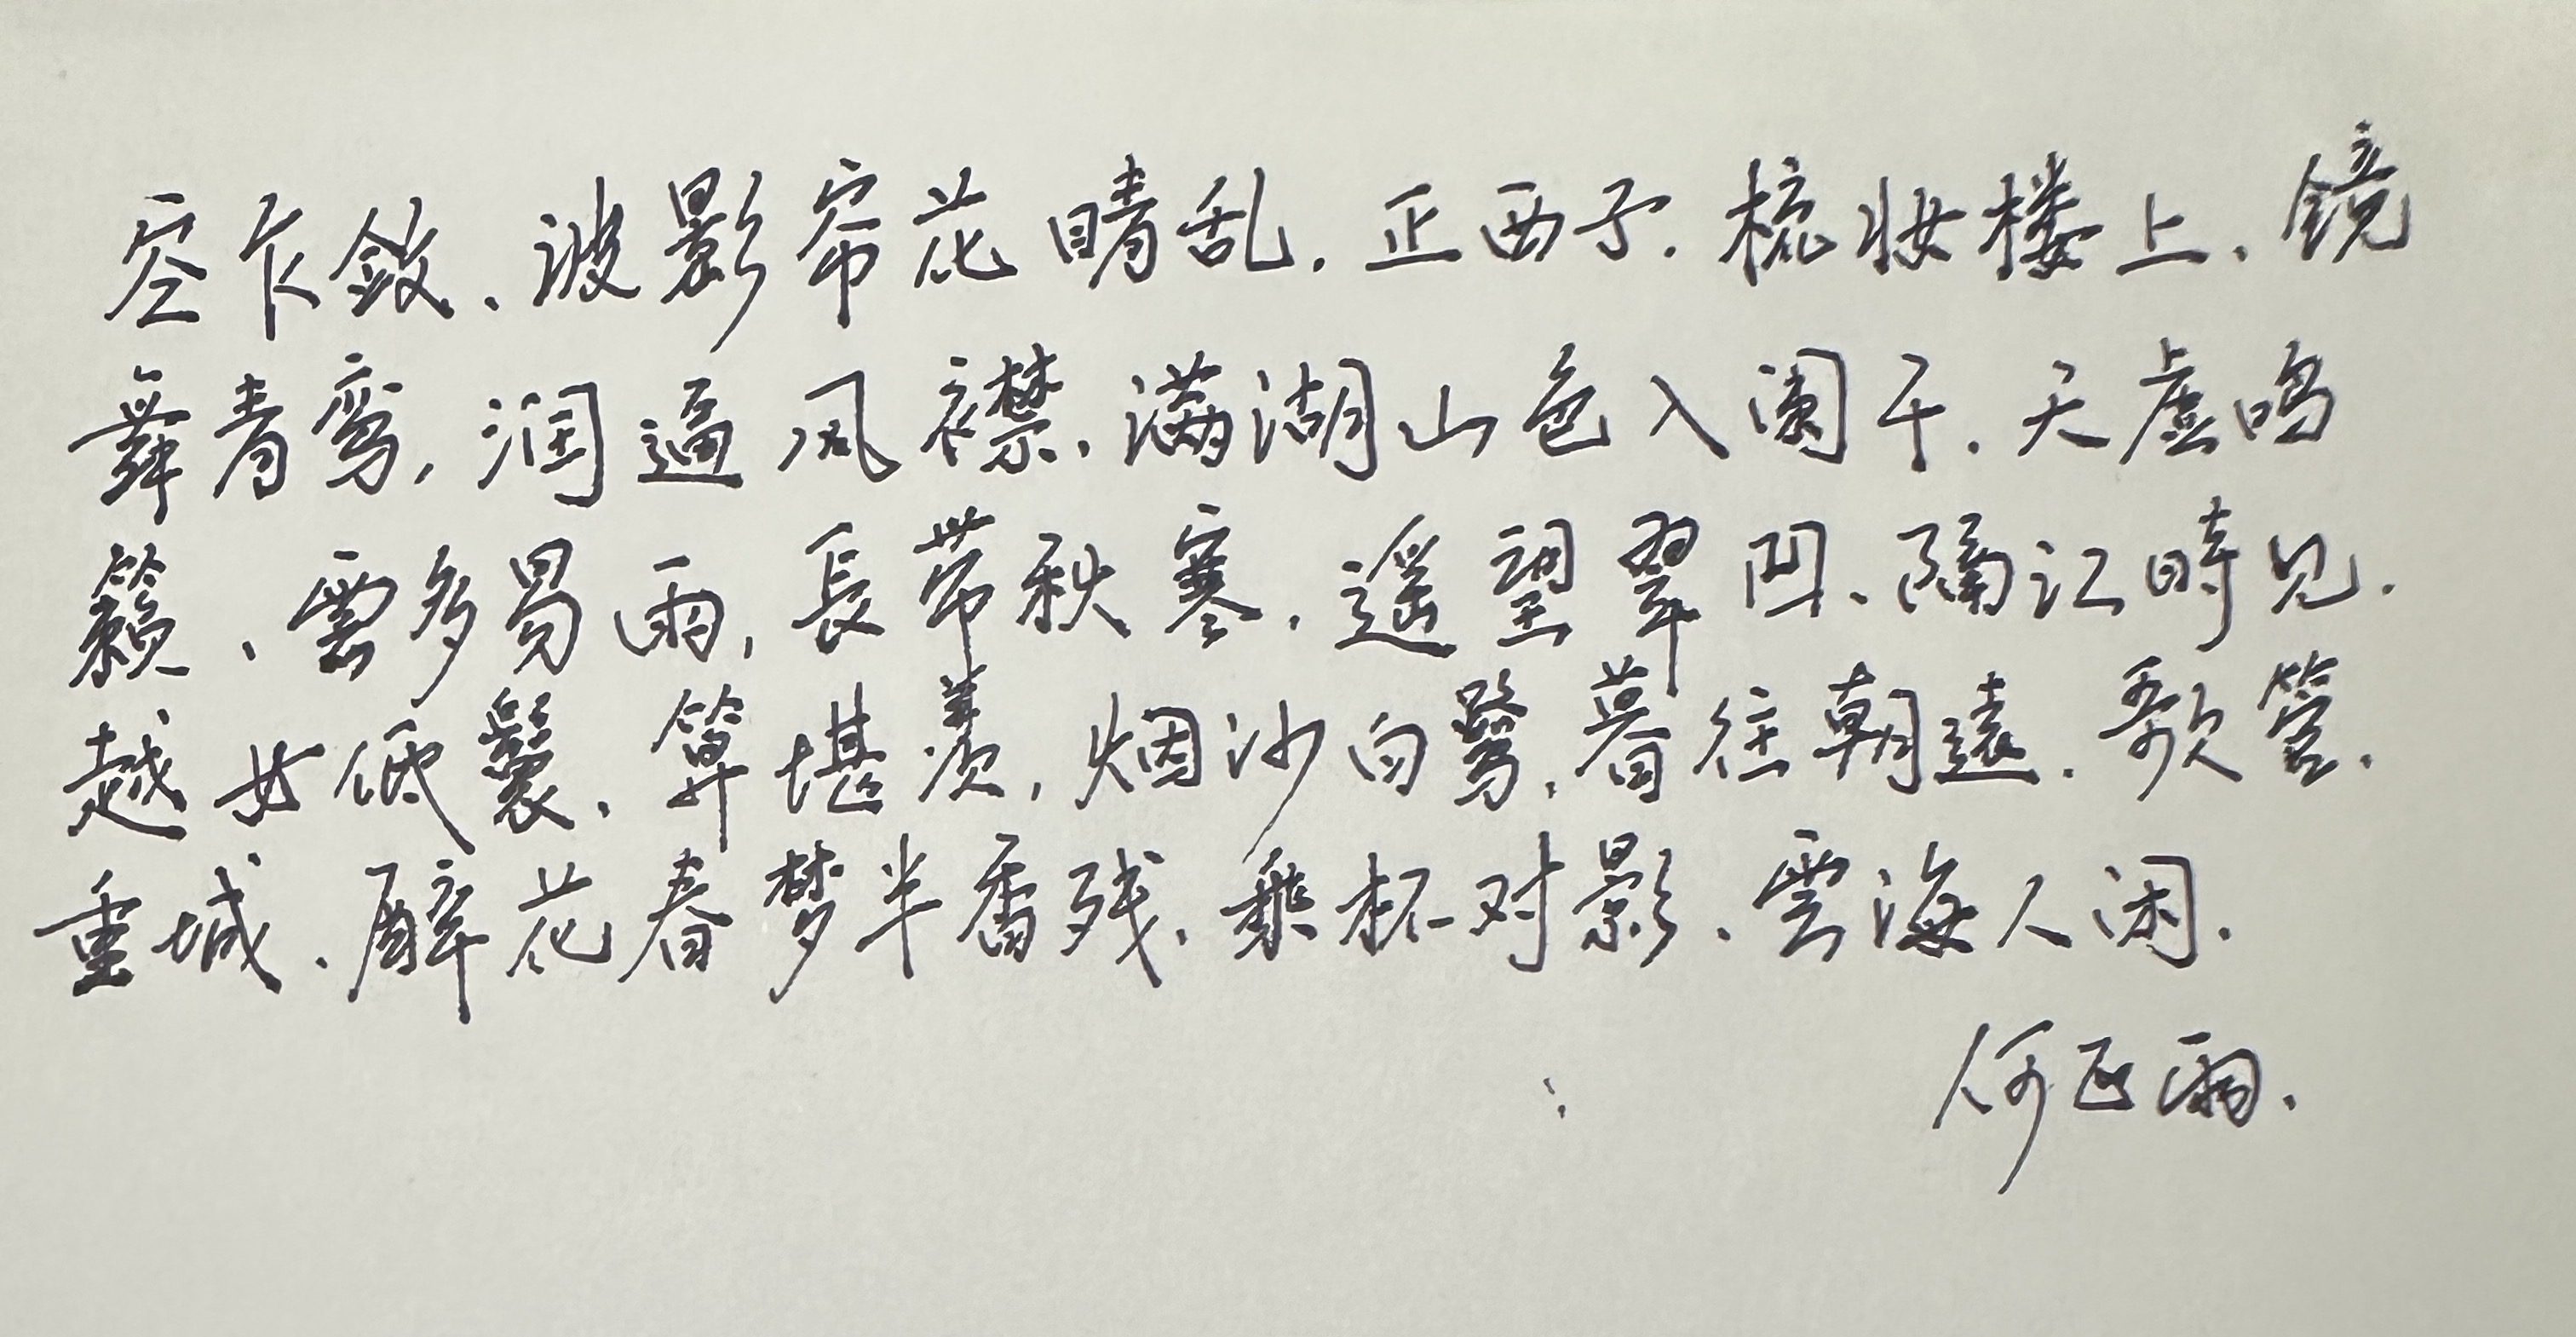 空乍敛、波影帘花晴乱.正西子.梳妆楼上、镜
舞青鸾,润逼风襟、满湖山色入阑干.天虚鸣
籁、雲多易雨,長带秋寒.遥望翠凹、隔江時见.
越女低鬟、算堪羡,烟沙白鹭,暮往朝還.歌管.
重城、醉花春梦半香残、乘杯对影、雲海人闲.
何正雨.